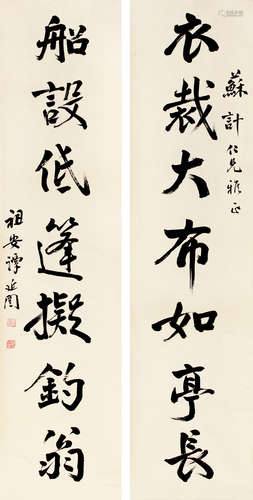 衣裁大布如亭長
蘇計仁兄雅正
船設低篷擬釣翁
祖安譚延闓